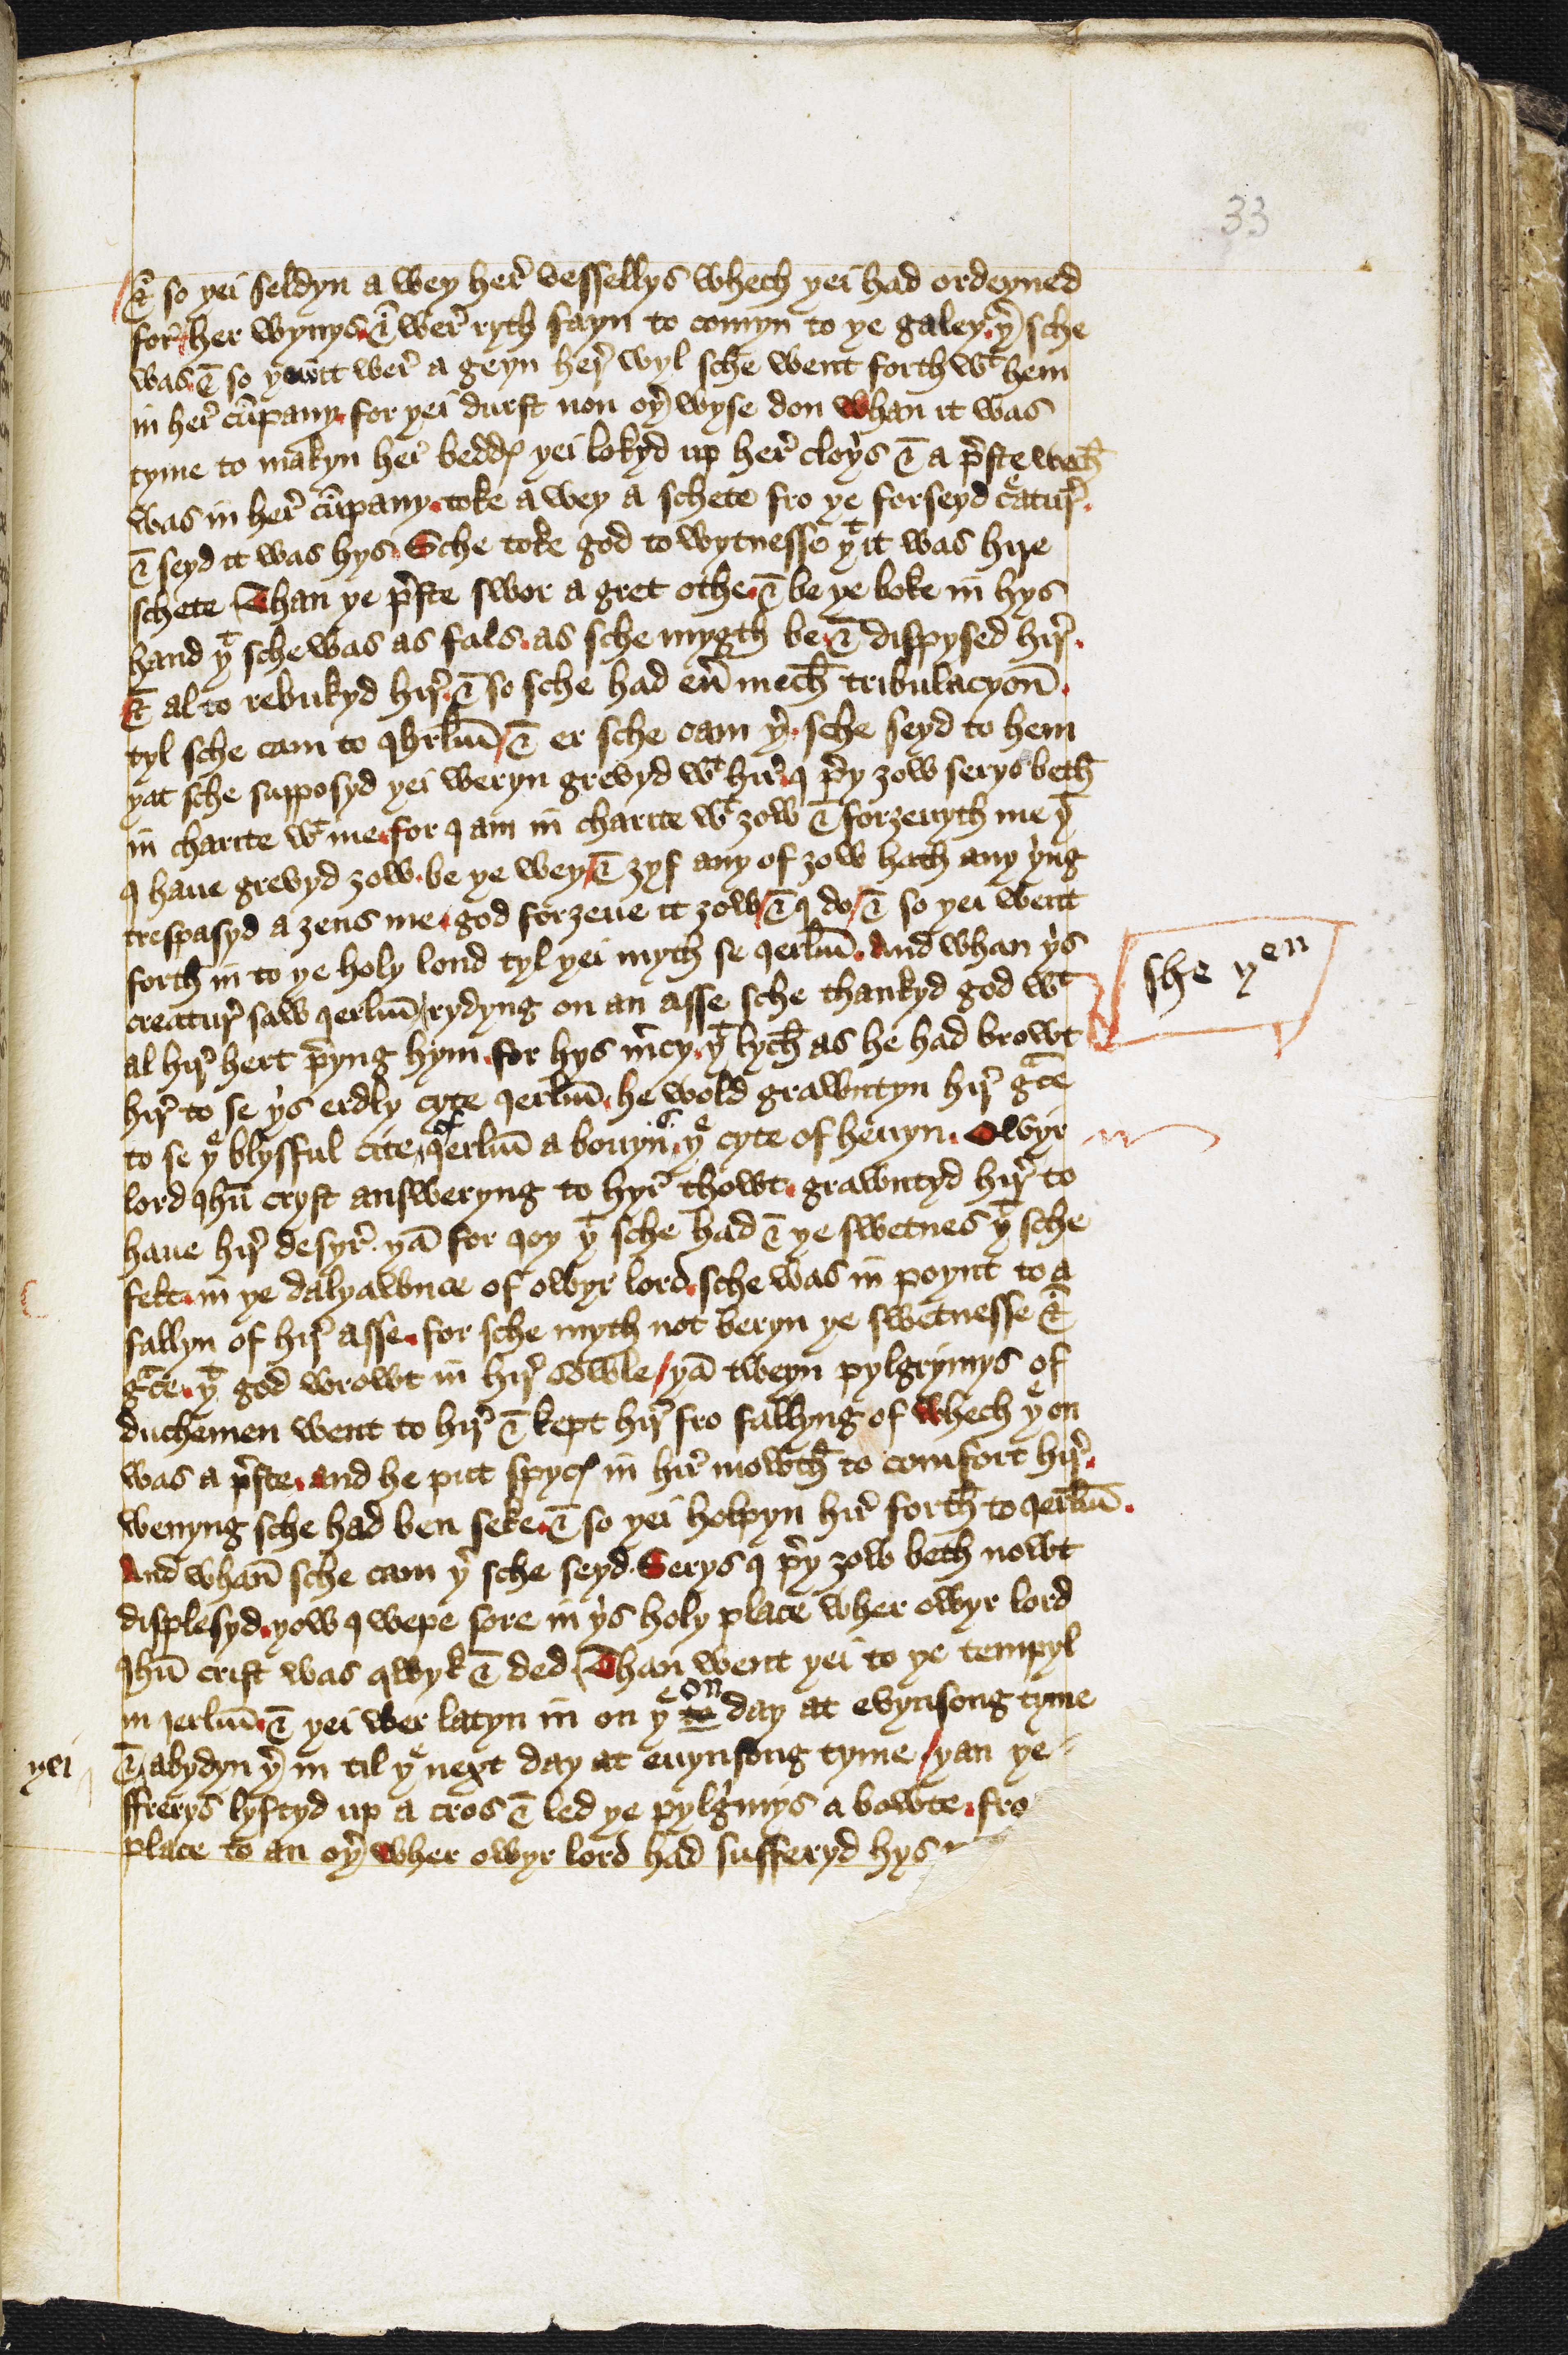 33
⁊ so yei seldyn a wey her̛ vessellys whech yei had ordeyned
for her wynys ⁊ wer̛ ryth fayn to comyn to ye galey yͬ sche
was ⁊ so it wer̛ a geyn her̛ wyl sche went forth wᵗ hem
in her̛ cūpany for yei durst non oyͬ wyse don whan it was
tyme to makyn her̛ beddꝭ yei lokyd up her̛ cloyͬs ⁊ a pͬste wech
was in her̛ cūpany toke a wey a schete fro ye forseyd cͤatur̛
⁊ seyd it was hys Sche toke god to wytnesse yᵗ it was hir̛e
schete Than ye pͬste swor a gret othe ⁊ be ye boke in hys
hand yᵗ sche was as fals as sche mygth be ⁊ dispysed hir̛
⁊ al to rebukyd hir̛ ⁊ so sche had eư mech̄ tribulacyon̄
tyl sche cam to Ihrlm̄ ⁊ er sche cam yͬ sche seyd to hem
yat sche supposyd yei weryn grevyd wᵗ hir̛ I pͬy ȝow serys beth̄
in charite wᵗ me for I am in charite wᵗ ȝow ⁊ forȝeuyth me yᵗ
I haue grevyd ȝow be ye wey ⁊ ȝyf any of ȝow hath any yͥng
trespasyd a ȝens me god forȝeue it ȝow ⁊ I do ⁊ so yei went
forth̄ in to ye holy lond tyl yei myth̄ se Ierlm̄ And whan yͥs
creatur̛ saw Ierlm̄ rydyng on an asse sche thankyd god wᵗ
al hir̛ hert pͬyng hym for hys m̛cy yᵗ lych̄ as he had browt
hir̛ to se yͥs erdly cyte Ierlm̄ he wold grawntyn hir̛ gͣce
to se yͤ blysful cite of Ierlm̄ a bouyn yͤ cyte of heuyn Owyr
lord Ihū cryst answeryng to hyr̛ thowt grawntyd hir̛ to
haue hir̛ desyr̛ yā for Ioy yᵗ sche had ⁊ ye swetnes yᵗ sche
felt in ye dalyawnce of owyr lord sche was in poynt to a
fallyn of hir̛ asse for sche myth not beryn ye swetnesse ⁊
gͣce yᵗ god wrowt in hir̛ sowle yā tweyn pylgrymys of
duchemen went to hir̛ ⁊ kept hir̛ fro fallyng of whech yͤ on
was a pͬste and he put spycꝭ in hir̛ mowth̄ to comfort hir̛
wenyng sche had ben seke ⁊ so yei holpyn hir̛ forth̄ to Ierlm̄
And whan̄ sche cam yͬ sche seyd Serys I pͬy ȝow beth nowt
displesyd yow I wepe sore in yͥs holy place wher owyr lord
Ihū crist was qwyk ⁊ ded Than went yei to ye tempyl
in Ierlm̄ ⁊ yei wer latyn in on yͤ to on day at evynsong tyme
yei
⁊ abydyn yͬ in til yͤ next day at euynsong tyme yan ye
ffrerys lyftyd up a cros ⁊ led ye pylgͥmys a bowte fro
place to an oyͬ wher owyr lord had sufferyd hys
she yᵉⁿ